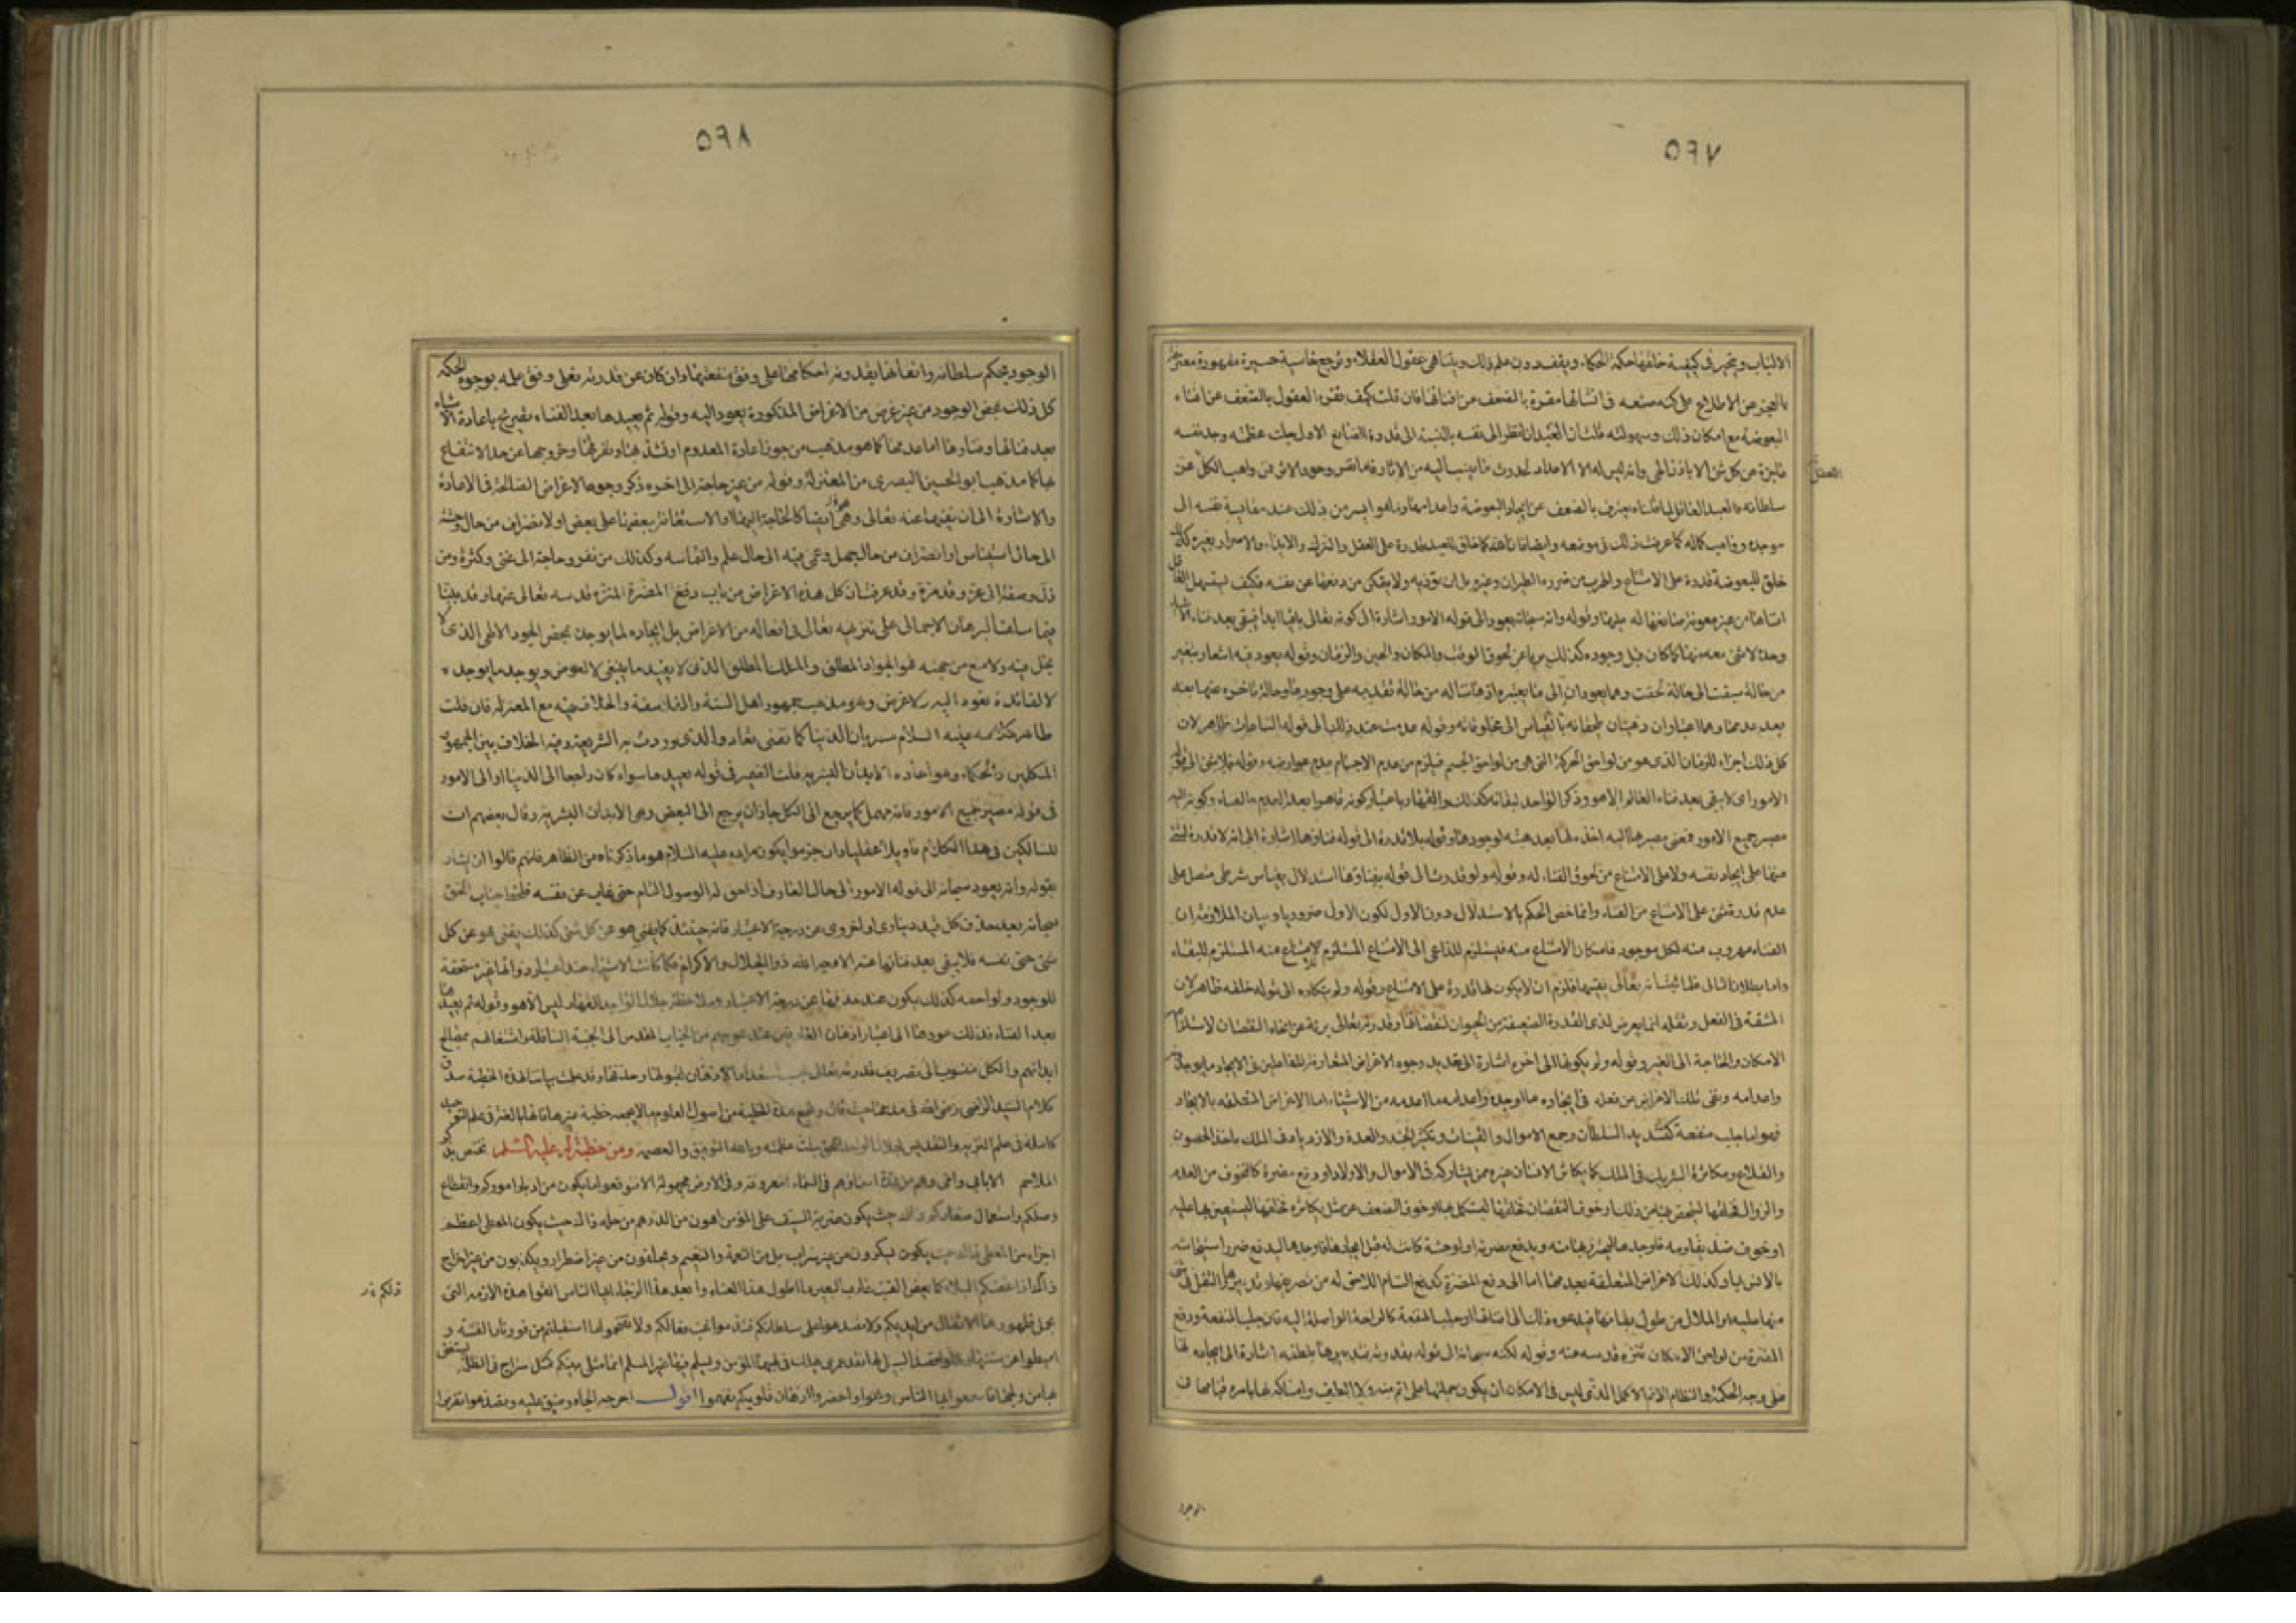 ٥٩٧
الالباب ويتحير فى كيفية خلقها حكمة الحكماء ويقف دون علم ذلك ويتناهى عقول العقلاء وترجع خاسية حسيرة مقهورة معترفة
بالعجز عن الاطلاع على كنه صنعه فى انشائها مقرة بالضعف عن افنائها فان قلت كيف تقر العقول بالضعف عن افناء
البعوضة مع امكان ذلك وسهولته قلت ان العبد اذا نظر الى نفسه بالنسبة الى قدرة الصانع الاول جلت عظمته وجد نفسه
عاجزة عن كل شئ الا باذن الهى وانه ليس له الا الاعداد لحدوث ما ينسب اليه من الاثار
سلطانه فالعبد العاقل لما قلناه يعترف بالضعف عن ايجاد البعوضة واعدامها وما هو ايسر من ذلك عند مقايسة نفسه الى
موجده وواهب كماله كما عرفت ذلك فى موضعه وايضا فان الله كما خلق للعبد قدرة على الفعل والترك والايذاء والاضرار بغيره كذلك
خلق للبعوضة قدرة على الامتناع والهرب من ضرره بالطيران وغيره بل ان تؤذيه ولا يتمكن من دفعها عن نفسه فكيف يستسهل العاقل
افناءها من غير معونة صانعها له عليها وقوله وانه سبحانه يعود الى قوله الامور اشارة الى كونه تعالى باقيا ابدا فيبقى بعد فناء الاشياء
وحده لا شئ معه منها كما كان قبل وجوده كذلك بريا عن لحوق الوقت والمكان والحين والزمان وقوله يعود فيه اشعار بتغير
من حالة سبقت الى حالة لحقت وهما يعودان الى ما يعتبره اذهاننا له من حالة تقدمه على وجودها وحالة تاخره عنها بعد
بعد عدمها وهما اعتباران ذهنيان يلحقانه بالقياس الى مخلوقاته وقوله عدمت عند ذلك الى قوله الساعات ظاهر لان
كل ذلك اجزاء للزمان الذى هو من لواحق الحركة التى هى من لواحق الجسم فيلزم من عدم الاجسام عدم عوارضه وقوله فلا شئ الى قوله
الامور اى لا يبقى بعد فناء العالم الا هو وذكر الواحد لبقائه كذلك والقهار باعتبار كونه قاهرا بعد العدم والفناء وكونه اليه
مصير جميع الامور فمعنى مصيرها اليه اخذه لها بعد هبته لوجودها وقوله بلا قدرة الى قوله فناؤها اشارة الى انه لا قدرة لشئ
منها على ايجاد نفسه ولا على الامتناع من لحوق الفناء له وقوله ولو قدرت الى قوله بقاؤها استدلال بقياس شرطى متصل على
عدم قدرة شئ على الامتناع من الفناء وانما خص الحكم بالاستدلال دون الاول لكون الاول ضروريا وبيان الملازمة ان
الفناء مهروب منه لكل موجود فامكان الامتناع منه فيستلزم للداعى الى الامتناع المستلزم للامتناع منه المستلزم للبقاء
واما بطلان التالى فلما ثبت انه تعالى يفنيها فلزم ان لا يكون لها قدرة على الامتناع وقوله ولم يتكاده الى قوله خلقه ظاهر لان
المشقة فى الفعل وثقله انما يعرض لذى القدرة الضعيفة من الحيوان لنقصانها وقدرته تعالى برية عن انحاء النقصان لاستلزامه
الامكان والحاجة الى الغير وقوله ولم يكونها الى اخره اشارة الى تعديد وجوه الاغراض المتعارفة للفاعلين فى الايجاد ما يوجد
واعدامه ونفى تلك الاغراض عن فعله فى ايجاده ما اوجده واعدامه ما اعدمه من الاشياء اما الاغراض المتعلقه بالايجاد
فهو اما جلب منفعة كتشديد السلطان وجمع الاموال والقينات وتكثير الجند والعدة والازدياد فى الملك باخذ الحصون
والقلاع ومكاثرة الشريك فى الملك كما يكاثر الانسان غيره ممن يشاركه فى الاموال والاولاد او رفع مضرة كالخوف من العدم
والزوال فخلقها ليتحصن بها من ذلك او خوف النقصان فخلقها ليستكمل بها او خوف الضعف عن مثل يكاثره فخلقها ليستعين بها عليه
او خوف ضد يقاومه فاوجدها ليحترز بها منه ويدفع مضرته او لوحشة كانت له قبل ايجادها فاوجدها ليدفع ضرر استيحاشه
بالانس بها وكذلك الاغراض المتعلقة بعدمها اما الى دفع المضرة كدفع السام اللاحق له من تصريفها وتدبيرها والثقل فى شئ
منها عليه او الملال من طول بقائها فيدعوه ذلك الى افنائها او جلب المنفعة كالراحة الواصلة اليه فان جلب المنفعة ودفع
المضرة من لواحق الامكان تنزه قدسه عنه وقوله لكنه سبحانه الى قوله بقدرته فتدبيرها بلطفه اشارة الى ايجاده لها
على وجه الحكمة والنظام الاتم الاكمل الذى ليس فى الامكان ان يكون جملتها على اتم منه ولا الطف وامساكه لها بامره قيامها فى
الوجود
٥٩٨
الوجود بحكم سلطانه واتقانها بقدرته احكامها على وفق منفعتها وان كان عن قدرته فعلى وفق علمه بوجوه الحكمة
كل ذلك بمحض الوجود من غير غرض من الاغراض المذكورة يعود اليه وقوله ثم يعيدها بعد الفناء تصريح باعادة الاشياء
بعد فنائها وفناؤها اما عدمها كما هو مذهب من جوز اعادة المعدوم او تشذبها وتفرقها وخروجها عن حد الانتفاع
بها كما مذهب ابو الحسين البصرى من المعتزلة وقوله من غير حاجة الى اخره ذكر وجوه الاغراض الصالحة فى الاعادة
والاشارة الى ان نفيها عنه تعالى وهى ايضا كالحاجة اليها او الاستعانة ببعضها على بعض او لانصراف من حال وحشة
الى حال استيناس او انصراف من حال جهل وعمى فيه الى حال علم والتماسه وكذلك من فقر وحاجة الى غنى وكثرة ومن
ذل وضعة الى عز وقدرة وقد عرفت ان كل هذه الاغراض من باب دفع المضرة المنزه قدسه تعالى عنها وقد بينا
فيما سلف البرهان الاجمالى على تنزيهه تعالى فى افعاله من الاغراض بل ايجاده لما يوجد بمحض الجود الالهى الذى لا
بخل فيه ولا منع من جهته فهو الجواد المطلق والملك المطلق الذى لا يفيد ما ينبغى لا لعوض ويوجد ما يوجد
لا لفائدة تعود اليه ولا غرض وهو مذهب جمهور اهل السنة والفلاسفة والخلاف فيه مع المعتزله فان قلت
ظاهر كلامه عليه السلام مصرح بان الدنيا كما تفنى تعاد والذى وردت به الشريعة وفيه الخلاف بين جمهور
المتكلمين والحكماء وهو اعادة الابدان البشرية قلت الضمير فى قوله يعيدها سواء كان راجعا الى الدنيا او الى الامور
فى قوله مصير جميع الامور فانه مهمل كما يرجع الى الكل جاز ان يرجع الى البعض وهى الابدان البشرية وقال بعضهم ان
للسالكين فى هذا الكلام تاويلا عقليا وان جزموا بكون مراده عليه السلام هو ما ذكرناه من الظاهر فانهم قالوا ان يشار
بقوله وانه يعود سبحانه الى قوله الامور الى حال العارف اذا حق له الوصول التام حتى غاب عن نفسه فلحظ جناب الحق
سبحانه بعد حذف كل قيد دنياوى او اخروى عن درجة الاعتبار فانه حينئذ كما يفنى هو عن كل شئ كذلك يفنى هو عن كل
شئ حتى نفسه فلا يبقى بعد فنائها عنه الا وجه الله ذو الجلال والاكرام فكما كانت الاشياء عند اعتبار ذواتها غير مستحقة
للوجود ولواحقه كذلك يكون عند حذفها عن درجة الاعتبار وملاحظة جلال الواحد القهار ليس الا هو وقوله ثم يعيدها
بعد الفناء فذلك عودها الى اعتبار اذهان العارفين عند عودهم من الجناب المقدس الى الجنبة السافلة واشتغالهم بمصالح
ابدانهم والكل منسوب الى تصريف قدرته تعالى بحسب استعداد الاذهان لقبولها وحذفها وقد علمت بيان هذه الخطبة صدق
كلام السيد الرضى رضى الله فى مدحها حيث قال وتجمع هذه الخطبة من اصول العلوم ما لا يجمعه خطبة غيرها فانها بالغة فى علم التوحيد
كاملة فى علم التنزيه والتقديس لجلال الواحد الحق جلت عظمته وبالله التوفيق والعصمة ومن خطبة له عليه السلم تختص بذكر
الملاحم الا بابى وامى وهم من عدة اسماؤهم فى السماء معروفة وفى الارض مجهولة الا فتوقعوا ما يكون من ادبار اموركم وانقطاع
وصلكم واستعمال صغاركم ذاك حيث يكون ضربة السيف على المؤمن اهون من الدرهم من حله ذاك حيث يكون المعطى اعظم
اجرا من المعطى ذاك حيث يكون تسكرون من غير شراب بل من النعمة والنعيم وتحلفون من غير اضطرار وتكذبون من غير احراج
ذاك اذا عضكم البلاء كما يعض القتب غارب البعير ما اطول هذا العناء وابعد هذا الرجاء ايها الناس القوا هذه الازمة التى
تحمل ظهورها الاثقال من ايديكم ولا تصدعوا على سلطانكم فتذموا غب فعالكم ولا تقتحموا ما استقبلتم من فور نار الفتنة و
اميطوا عن سننها وخلوا قصد السبيل لها فقد لعمرى يهلك فى لهبها المؤمن ويسلم فيها غير المسلم انما مثلى بينكم كمثل سراج فى الظلمة يستضئ
بها من ولجها فاسمعوا ايها الناس وعوا واحضروا اذهان قلوبكم تفهموا اقول